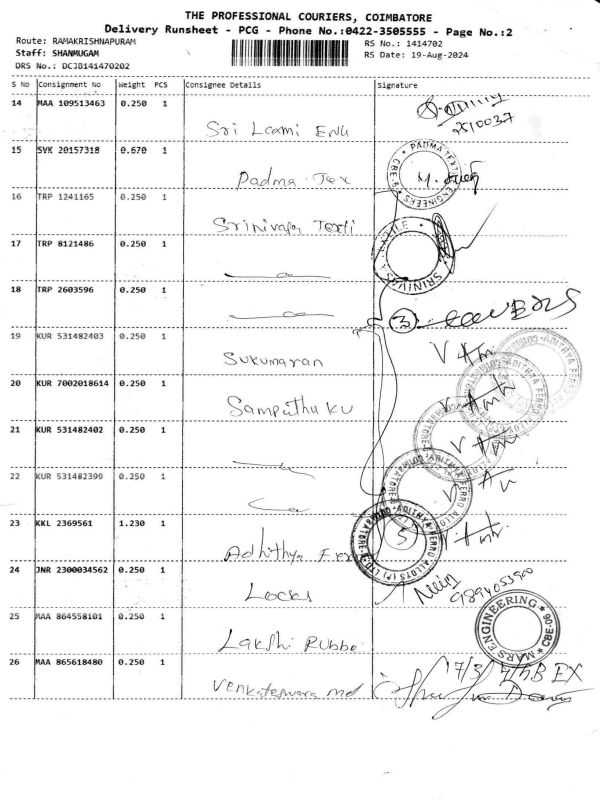 THE PROFESSIONAL COURIERS, COIMBATORE
Delivery Runsheet - PCG - Phone No.:0422-3505555 - Page No.:2
Route: RAMAKRISHNAPURAM
RS No.: 1414702
Staff: SHANMUGAM
RS Date: 19-Aug-2024
DRS No.: DCJB141470202
S No Consignment No Weight PCS Consignee Details Signature
14 MAA 109513463 0.250 1
Sri Laxmi ENG
2510037
15 SVK 20157318 0.670 1
Padma Tex
PADMA TEXTILE ENGINEERS CBE-
16 TRP 1241165 0.250 1
Srinivasa Texti
17 TRP 8121486 0.250 1
SRINIVASA
18 TRP 2603596 0.250 1
3
19 KUR 531482403 0.250 1
Sukumaran
20 KUR 7002018614 0.250 1
Sampathu ku
21 KUR 531482402 0.250 1
22 KUR 531482399 0.250 1
23 KKL 2369561 1.230 1
Adhithya Fer
ADITHYA FERRO ALLOYS (P) LTD
5
24 JNR 2300034562 0.250 1
Locks
25 MAA 864558101 0.250 1
Lakshi Rubbe
MARS ENGINEERING CBE-06
26 MAA 865618480 0.250 1
Venkateswara md